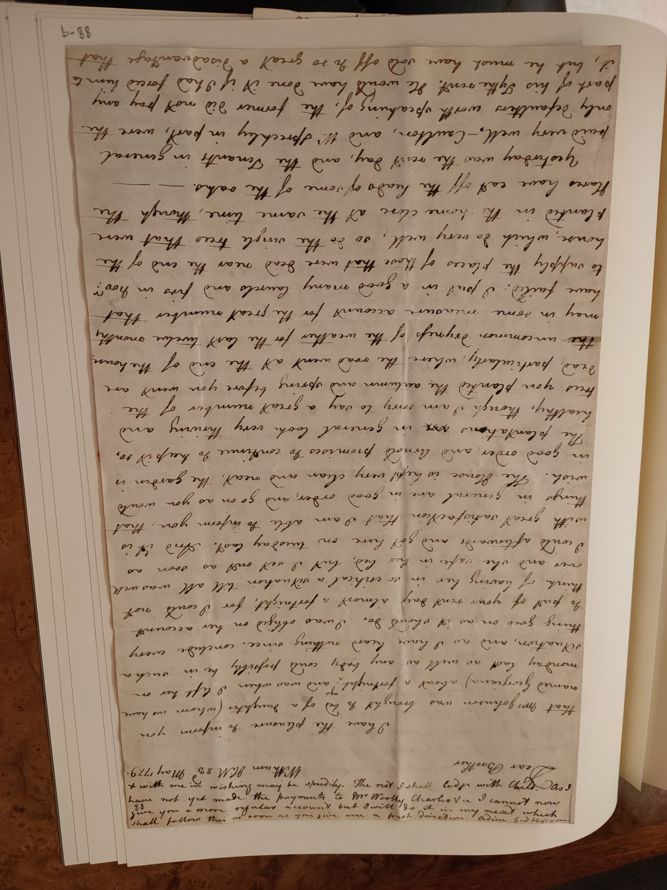 Dear Brother Witham May 1779.
I have the pleasure to inform you
that Mrs Johnson was brought to bed of a daughter (whom we have
named Georgiana) about a fortnight; and was when I left her on
monday last as well as any body could possibly be in such a
situation, and, as I have heard nothing since, conclude every
thing goes on as it should do. I was obliged on her account
to put of your rent day almost a fortnight, for I could not
think of leaving her in so critical a situation till all was well
over and she safe in her bed, but I set out as soon as
I could afterwards and got here on tuesday last. And it is
with great satisfaction that I am able to inform you, that
things in general are in good order, and go on as you would
wish. The House is kept very clean and neat, the garden is
in good order, and Arnold promises to continue to keep it so.
The plantations in general look very thriving and
healthy, though I am sorry to say a great number of the
trees you planted the autumn and spring before you went are
dead, particularly, where the road went at the end of the house.
the uncommon dryness of the weather for the last twelve months
may in some measure account for the great number that
have failed: I put in a good many laurels and firs in Novr.
to supply the places of those that were dead near the end of the
house, which do very well, so do the single trees that were
planted in the home close at the same time, though the
Hares have eat off the heads of some of the oaks.
Yesterday was the rent day, and the Tenants in general
paid very well, Caulton, and Wm Sprechly in part, were the
only defaulters worth speaking of, the former did not pay any
part of his Tythe rent. He would have done it if I had forced him to
it, but he must have sold off to so great a disadvantage that
88-9
& with me in wishing may be speedily. The rest I shall lodge with Child. As I
have not yet made the payments to Mr Woolly Charles &c I cannot now
give you a more regular account but I will do it in my next which
shall follow this as soon as you send me a proper direction. adieu